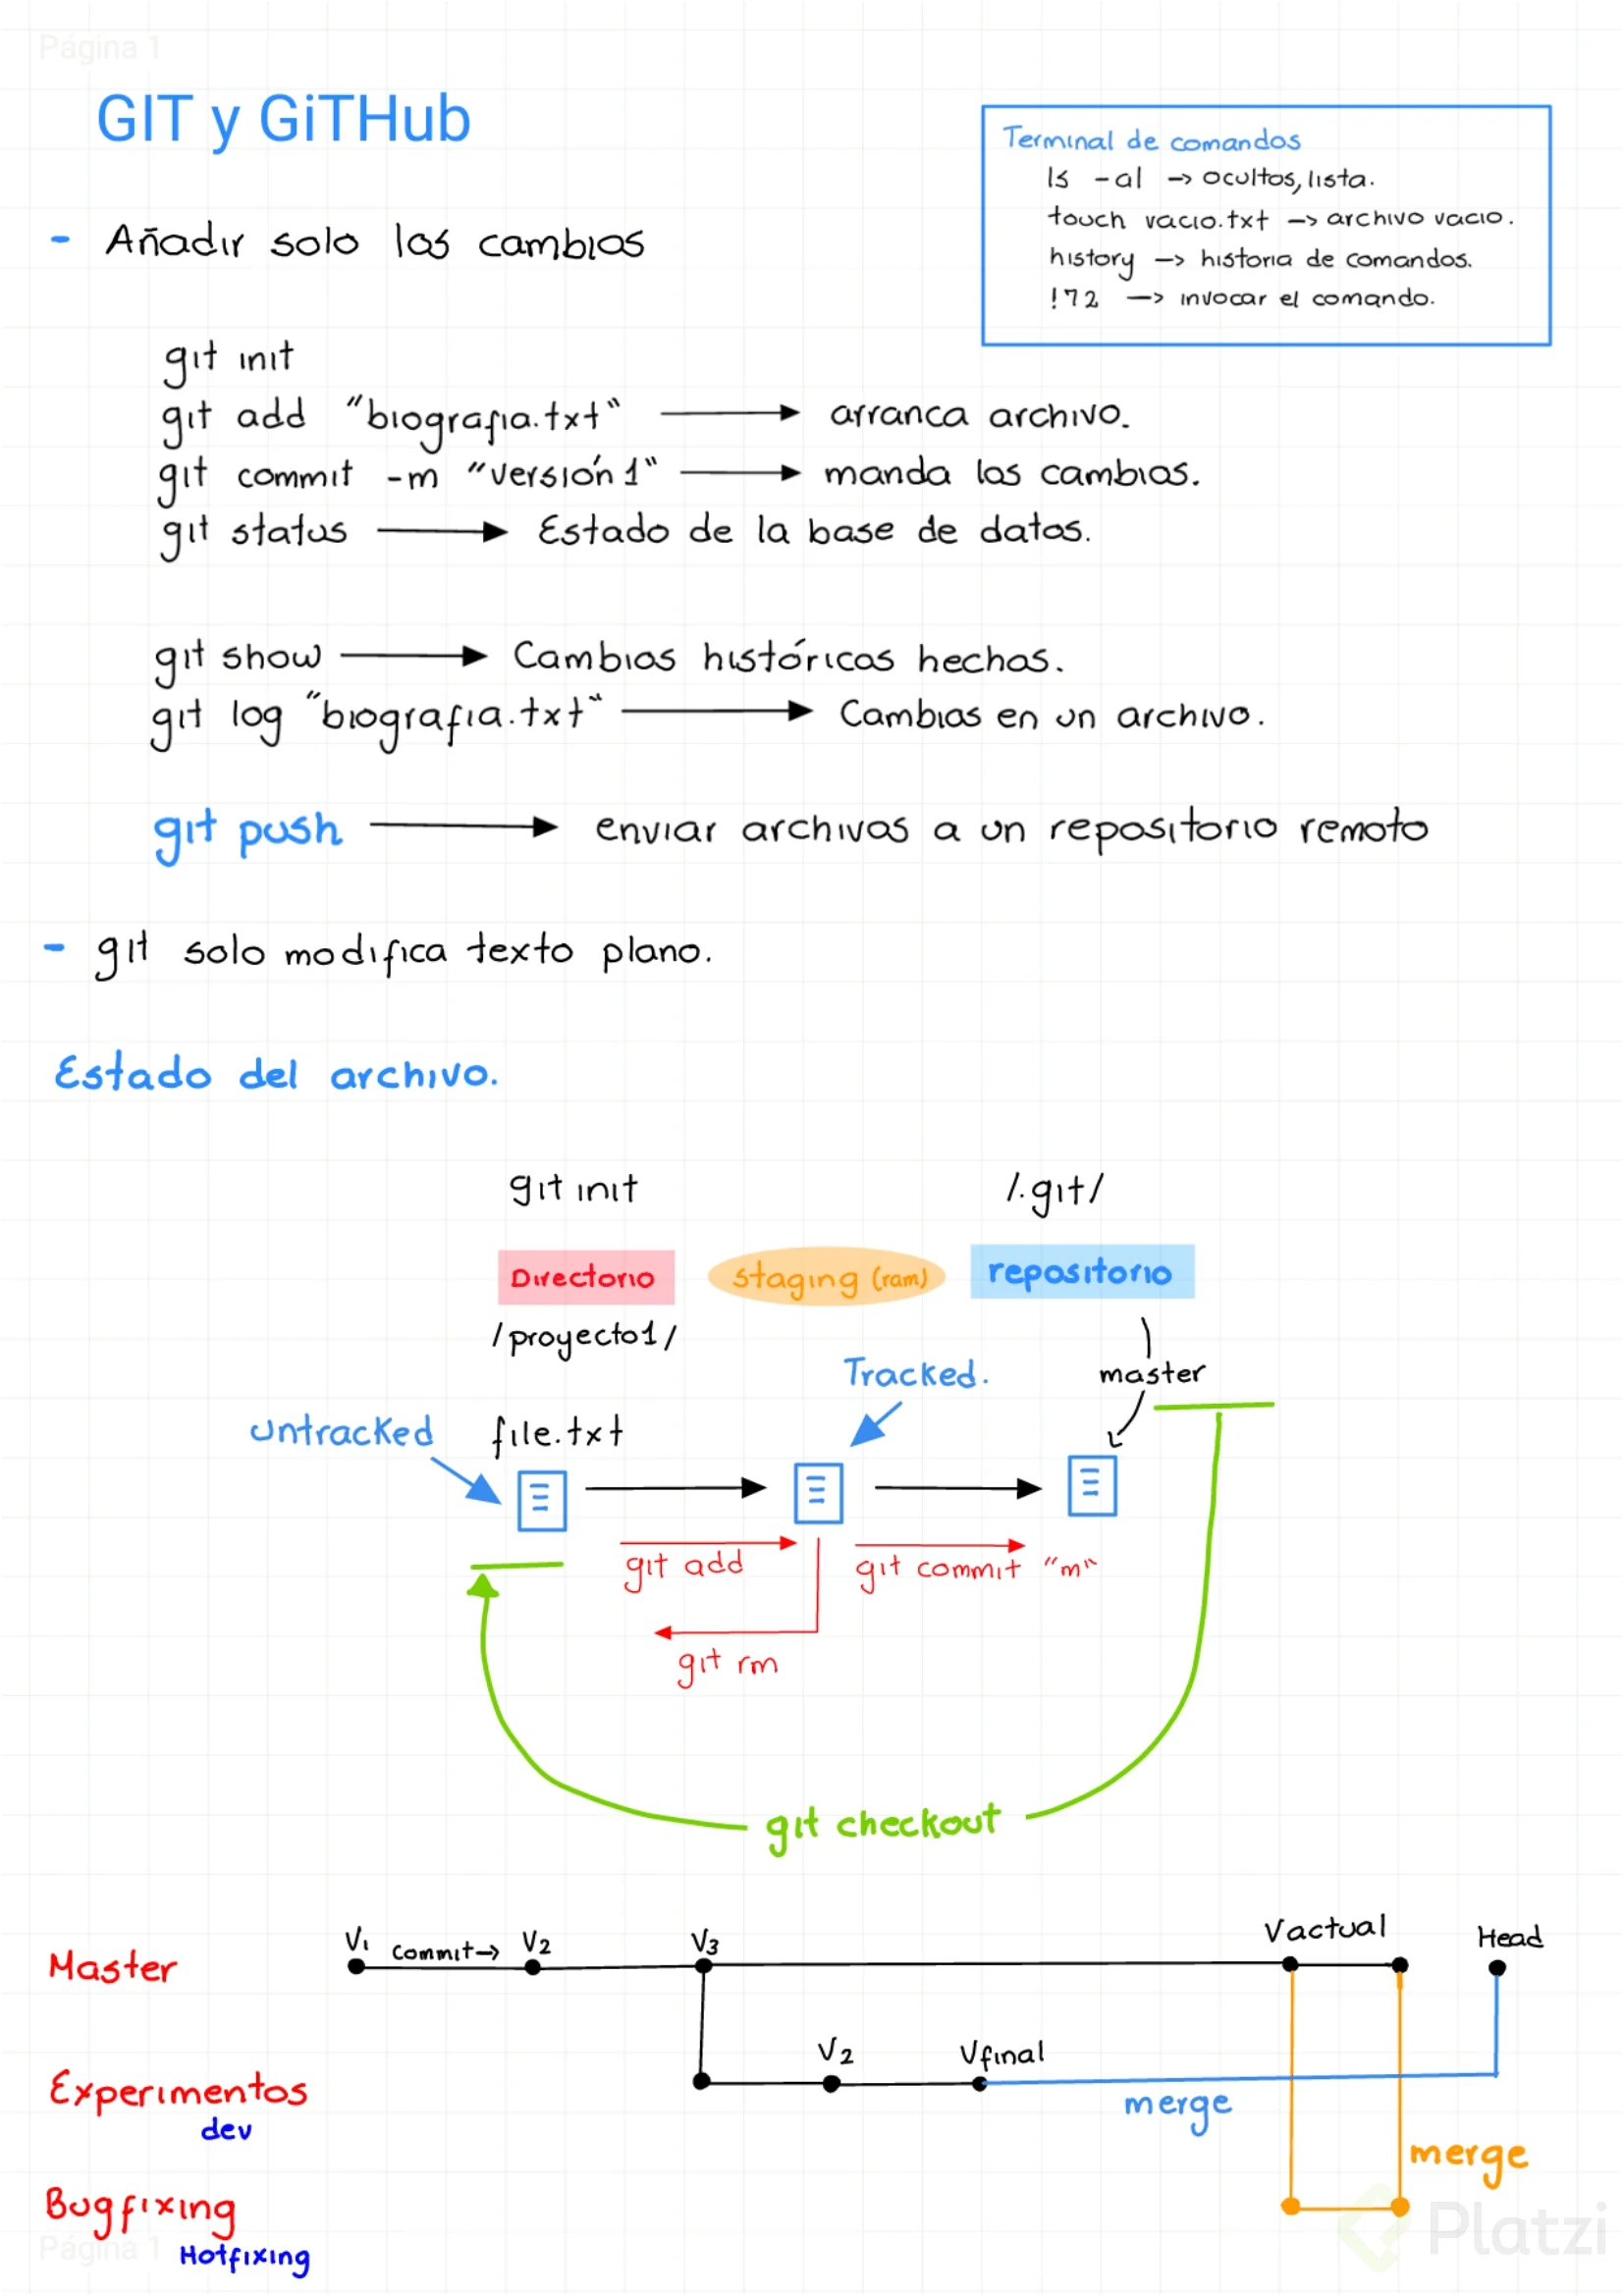 Página 1
GIT y GiTHub
Terminal de comandos
ls -al -> ocultos, lista.
touch vacio.txt -> archivo vacio.
history -> historia de comandos.
!72 -> invocar el comando.
- Añadir solo los cambios
git init
git add "biografia.txt" → arranca archivo.
git commit -m "versión 1" → manda los cambios.
git status → Estado de la base de datos.
git show → Cambios históricos hechos.
git log "biografia.txt" → Cambios en un archivo.
git push → enviar archivos a un repositorio remoto
- git solo modifica texto plano.
Estado del archivo.
git init /.git/
Directorio staging (ram) repositorio
/proyecto1/
Tracked. master
Untracked file.txt
git add git commit "m"
git rm
git checkout
Master V1 commit→ V2 V3 Vactual Head
V2 Vfinal
Experimentos merge
dev
merge
Bugfixing
Página 1 Hotfixing
Platzi